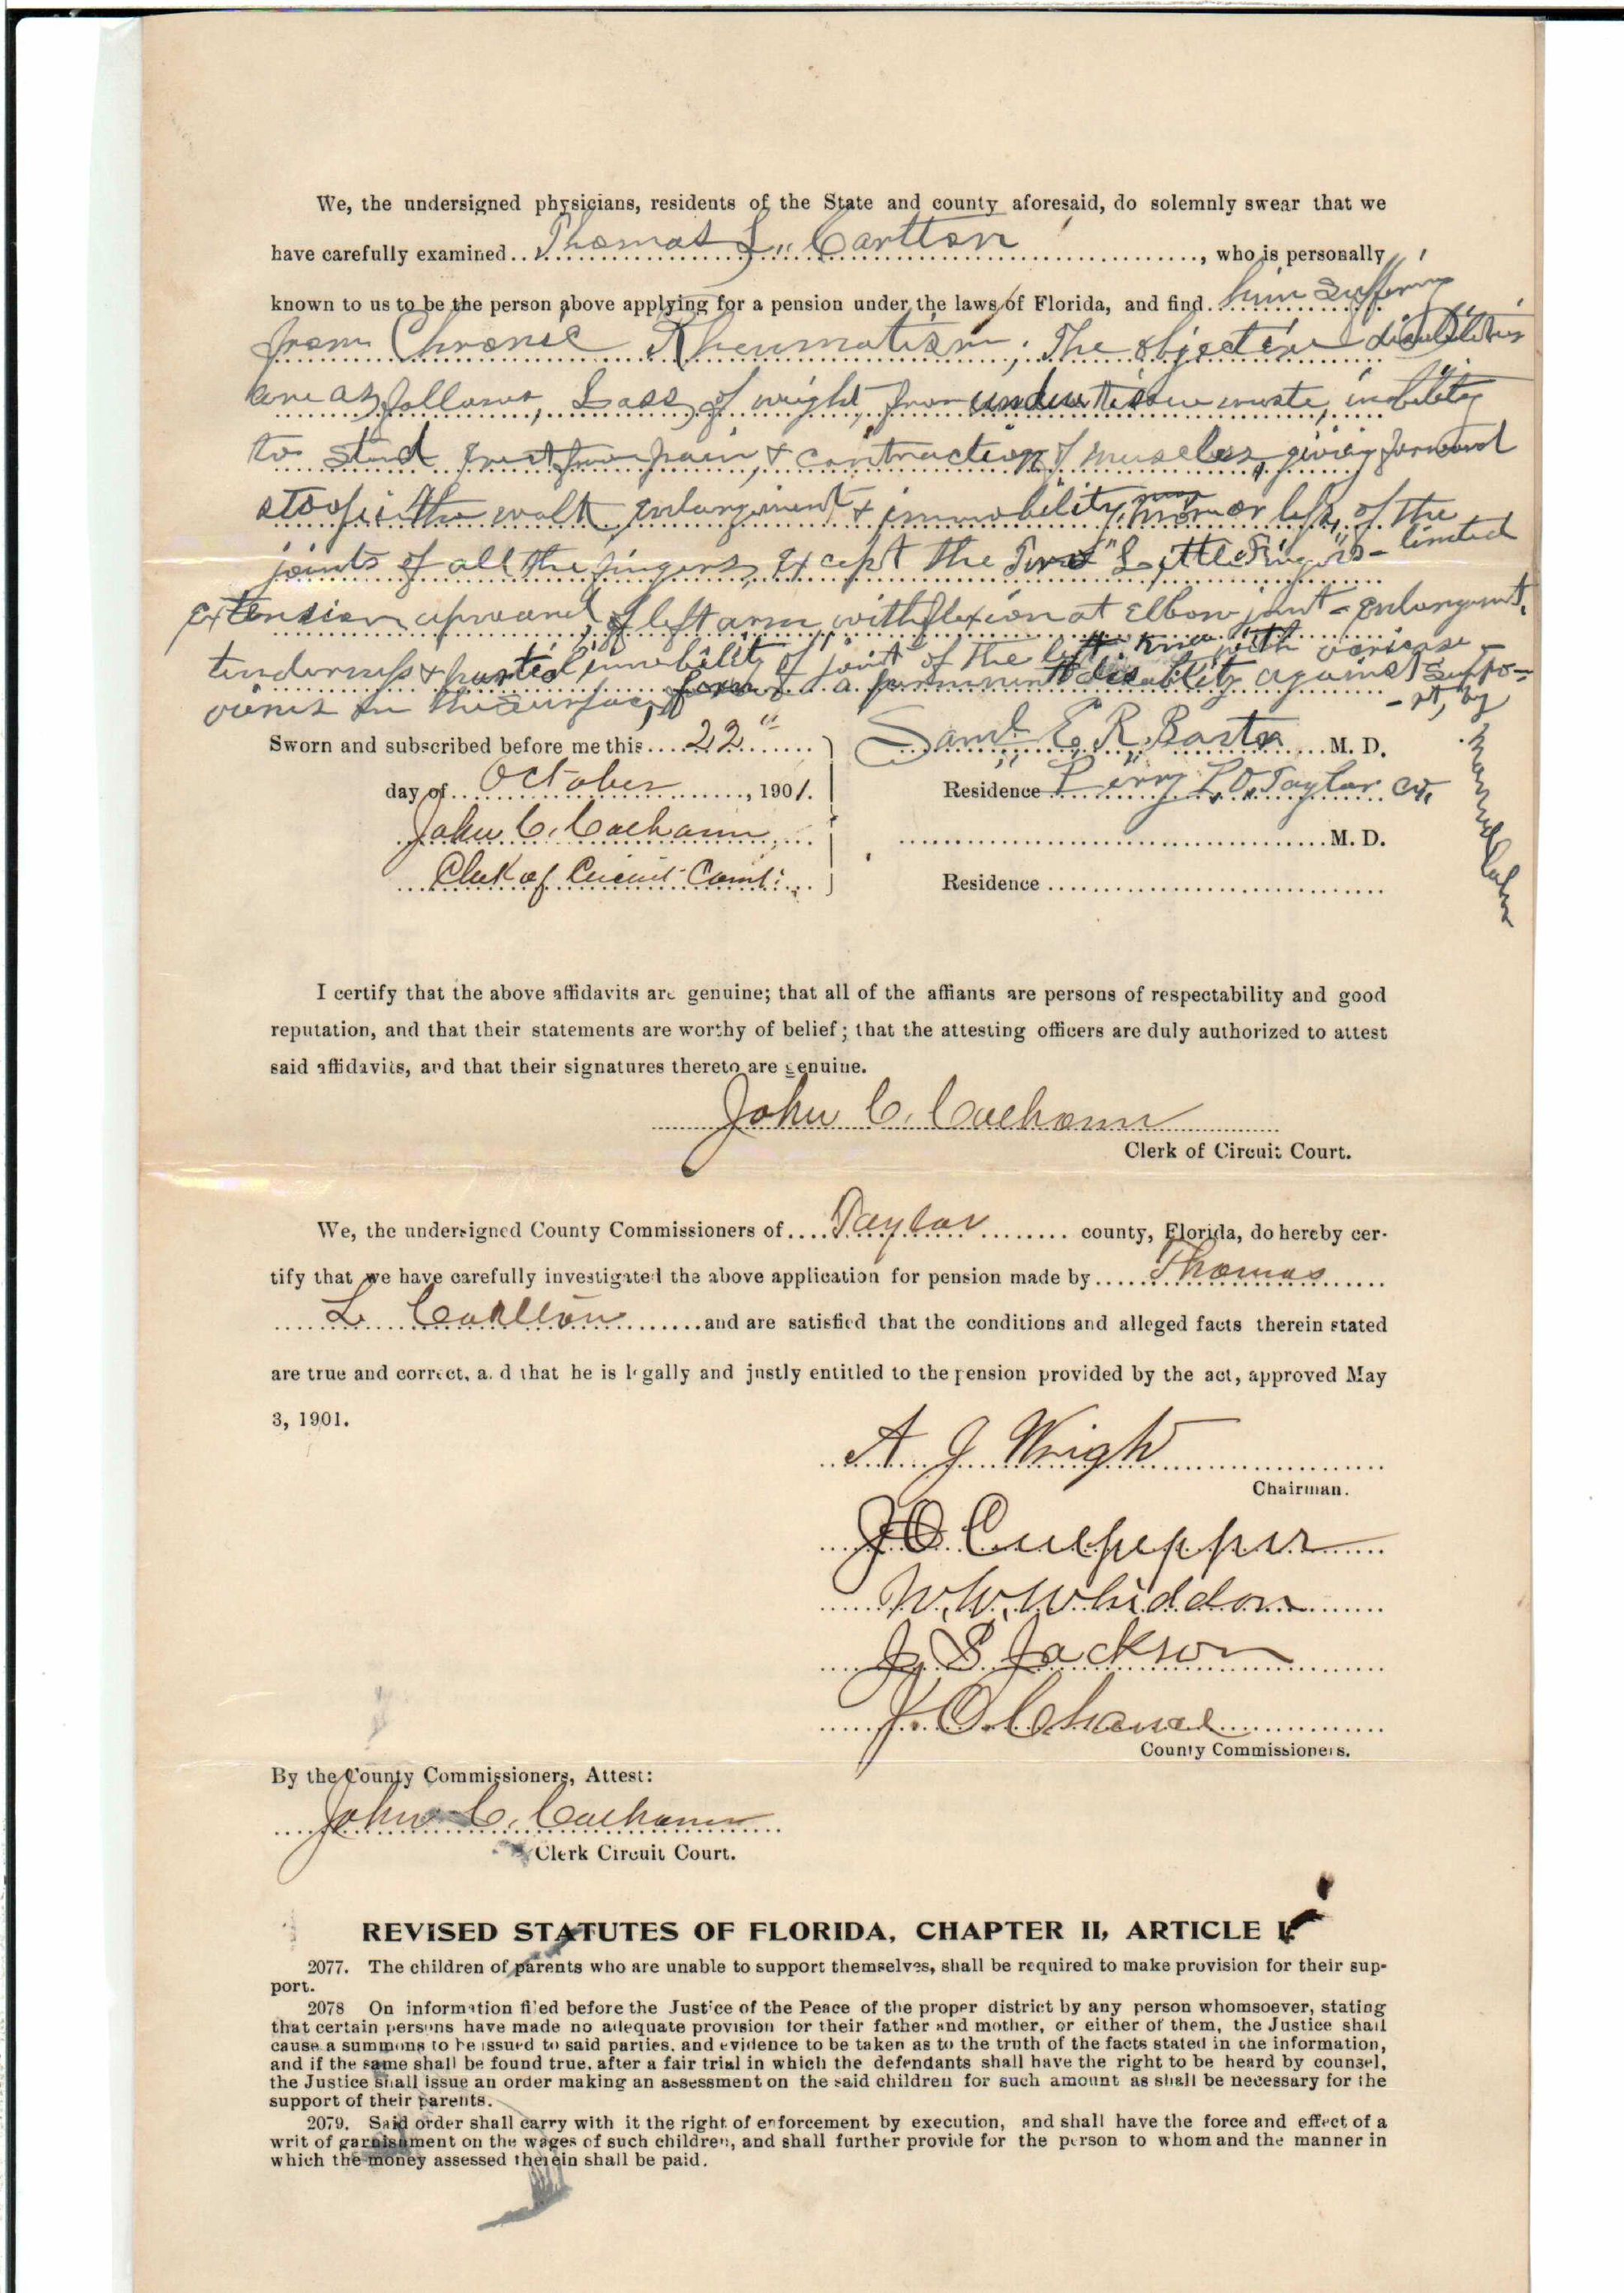 We, the undersigned physicians, residents of the State and county aforesaid, do solemnly swear that we
have carefully examined Thomas L. Carlton, who is personally
known to us to be the person above applying for a pension under the laws of Florida, and find him suffering
from Chronic Rheumatism; The objective disabilities
are as follows, Loss of weight from undue tissue waste, inability
to stand erect from pain & contraction of muscles, giving forward
stoop in the walk enlargement & immobility, more or less, of the
joints of all the fingers, except the Two "Little Fingers" - limited
extension upward, of left arm, with flexion at Elbow joint - enlargement,
tenderness & partial immobility of joint of the left knee with varicose
veins on the surface, forms a permanent disability against suppo-
- rt, by
manual labor
Sworn and subscribed before me this 22"
day of October, 1901.
John C. Calhoun
Clerk of Circuit Court.
Saml. E. R. Barton M. D.
Residence Perry P.O. Taylor Co.
M. D.
Residence
I certify that the above affidavits are genuine; that all of the affiants are persons of respectability and good
reputation, and that their statements are worthy of belief; that the attesting officers are duly authorized to attest
said affidavits, and that their signatures thereto are genuine.
John C. Calhoun
Clerk of Circuit Court.
We, the undersigned County Commissioners of Taylor county, Florida, do hereby cer-
tify that we have carefully investigated the above application for pension made by Thomas
L Carlton and are satisfied that the conditions and alleged facts therein stated
are true and correct, and that he is legally and justly entitled to the pension provided by the act, approved May
3, 1901.
A J Wright
Chairman.
J O Culpepper
W. W. Whiddon
J. S. Jackson
J. O. Chance
County Commissioners.
By the County Commissioners, Attest:
John C. Calhoun
Clerk Circuit Court.
REVISED STATUTES OF FLORIDA, CHAPTER II, ARTICLE I.
2077. The children of parents who are unable to support themselves, shall be required to make provision for their sup-
port.
2078 On information filed before the Justice of the Peace of the proper district by any person whomsoever, stating
that certain persons have made no adequate provision for their father and mother, or either of them, the Justice shall
cause a summons to be issued to said parties, and evidence to be taken as to the truth of the facts stated in the information,
and if the same shall be found true, after a fair trial in which the defendants shall have the right to be heard by counsel,
the Justice shall issue an order making an assessment on the said children for such amount as shall be necessary for the
support of their parents.
2079. Said order shall carry with it the right of enforcement by execution, and shall have the force and effect of a
writ of garnishment on the wages of such children, and shall further provide for the person to whom and the manner in
which the money assessed therein shall be paid.